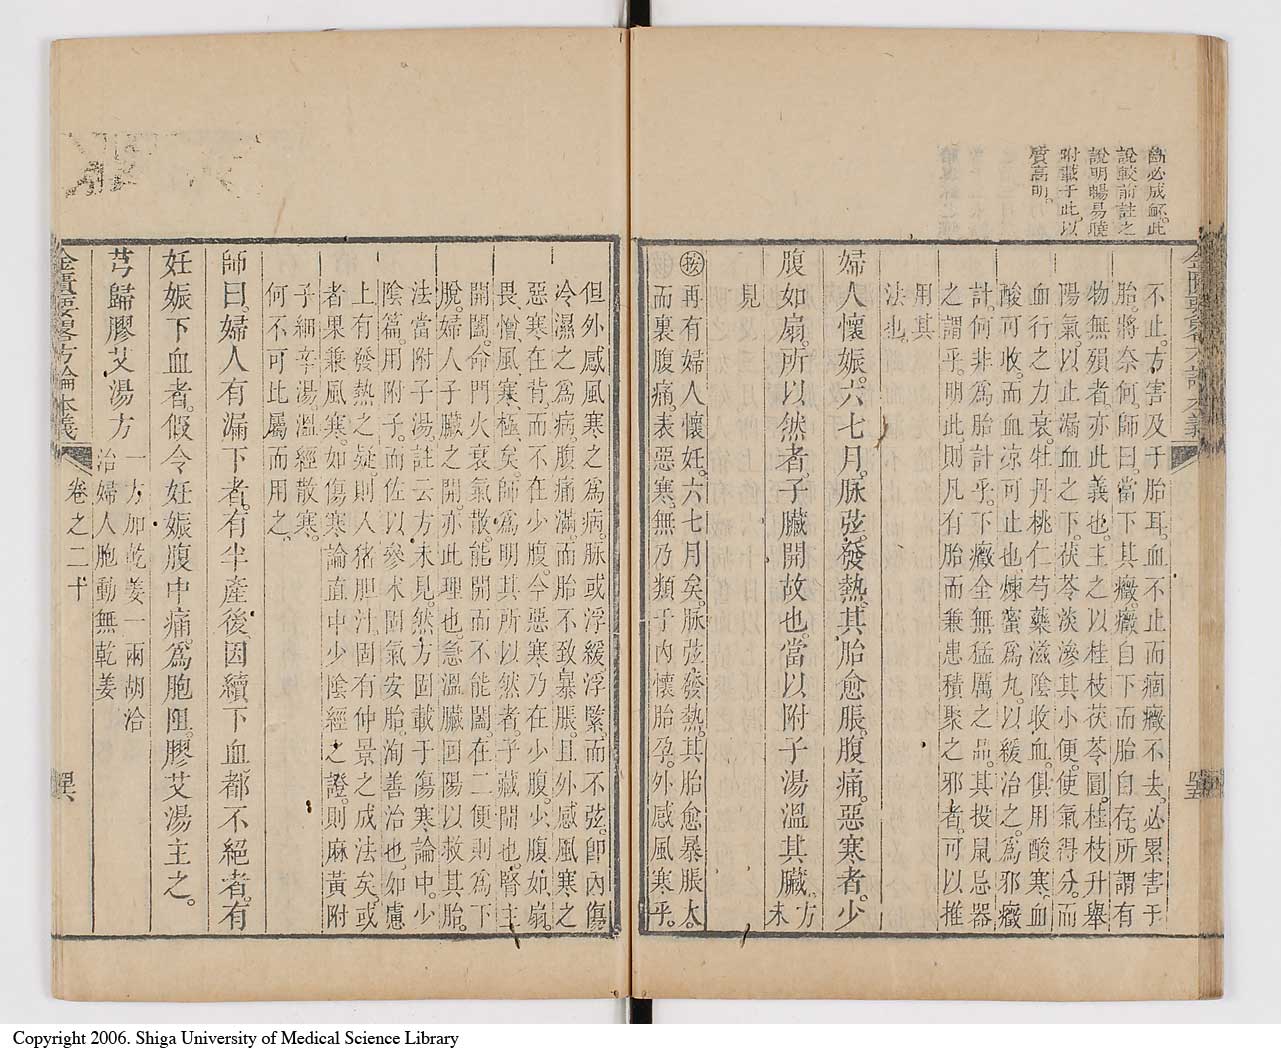 斷必成𮐃此
說較前註之
說明暢易曉
附載于此以
質高明。
不止。方害及于胎耳。血不止而痼癥不去。必累害于
胎。將奈何。師曰。當下其癥。癥自下而胎自存。所謂有
物無殞者。亦此義也。主之以桂枝茯苓圓。桂枝升舉
陽氣。以止漏血之下。茯苓淡滲其小便。使氣得分。而
血行之力衰。牡丹桃仁芍藥滋陰收血。俱用酸寒。血
酸可收。而血凉可止也。煉蜜爲丸。以緩治之。爲邪癥
計。何非爲胎計乎。下癥全無猛厲之品。其投鼠忌器
之謂乎。明此。則凡有胎而兼患積聚之邪者。可以推
用其
法也。
婦人懷娠。六七月。脉弦。發熱。其胎愈脹。腹痛。惡寒者。少
腹如扇。所以然者。子臟開故也。當以附子湯溫其臟。方未
見
按再有婦人懷妊。六七月矣。脉弦發熱。其胎愈暴脹太。
而裏腹痛。表惡寒。無乃類于內懷胎孕。外感風寒乎。
但外感風寒之爲病。脉或浮緩浮緊。而不弦。即內傷
冷濕之爲病。腹痛滿。而胎不致暴脹。且外感風寒之
惡寒在背。而不在少腹。今惡寒乃在少腹。少腹如扇。
畏憎風寒極矣。師爲明其所以然者。子藏開也。腎主
開闔。命門火衰氣散。能開而不能闔。在二便則爲下
脫。婦人子臟之開。亦此理也。急溫臟回陽以救其胎。
法當附子湯。註云方未見。然方固載于傷寒論中。少
陰篇。用附子。而佐以參朮固氣安胎。洵善治也。如慮
上有發熱之疑。則人猪胆汁。固有仲景之成法矣。或
者果兼風寒。如傷寒論直中少陰經之證。則麻黃附
子細辛湯。溫經散寒。
何不可比屬而用之。
師曰。婦人有漏下者。有半產後因續下血都不絕者。有
妊娠下血者。假令妊娠腹中痛。爲胞阻。膠艾湯主之。
芎歸膠艾湯方
一方加乾姜一兩胡洽
治婦人胞動無乾姜
金匱要畧方論本義
卷之二十